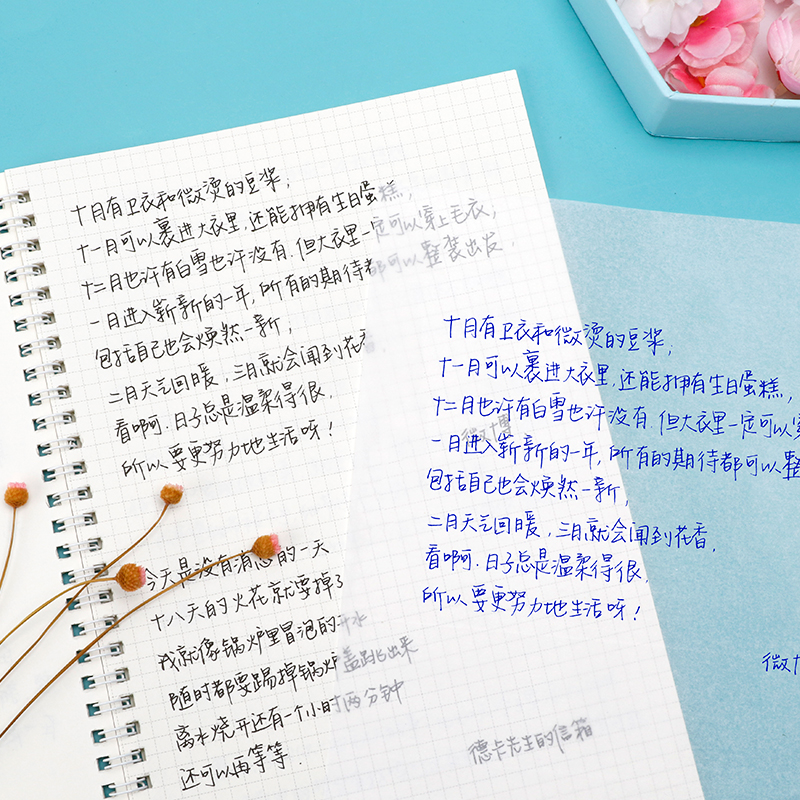 十月有卫衣和微烫的豆浆，
十一月可以裹进大衣里，还能拥有生日蛋糕，
十二月也许有白雪也许没有，但大衣里一定可以穿上毛衣，
一月进入崭新的一年，所有的期待都可以整装出发，
包括自己也会焕然一新，
二月天气回暖，三月就会闻到花香
看啊啊，日子总是温柔得很，
所以要更努力地生活呀！
微博
今天是没有消息的一天
十八天的火花就要掉了
我就像锅炉里冒泡的开水
随时都要踢掉锅炉盖跳出来
离水烧开还有一个小时两分钟
还可以再等等.
德卡先生的信箱
十月有卫衣和微烫的豆浆，
十一月可以裹进大衣里，还能拥有生日蛋糕，
十二月也许有白雪也许没有，但大衣里一定可以穿
一月进入崭新的一年，所有的期待都可以整
包括自己也会焕然一新，
二月天气回暖，三月就会闻到花香，
看啊啊，日子总是温柔得很，
所以要更努力地生活呀！
微博